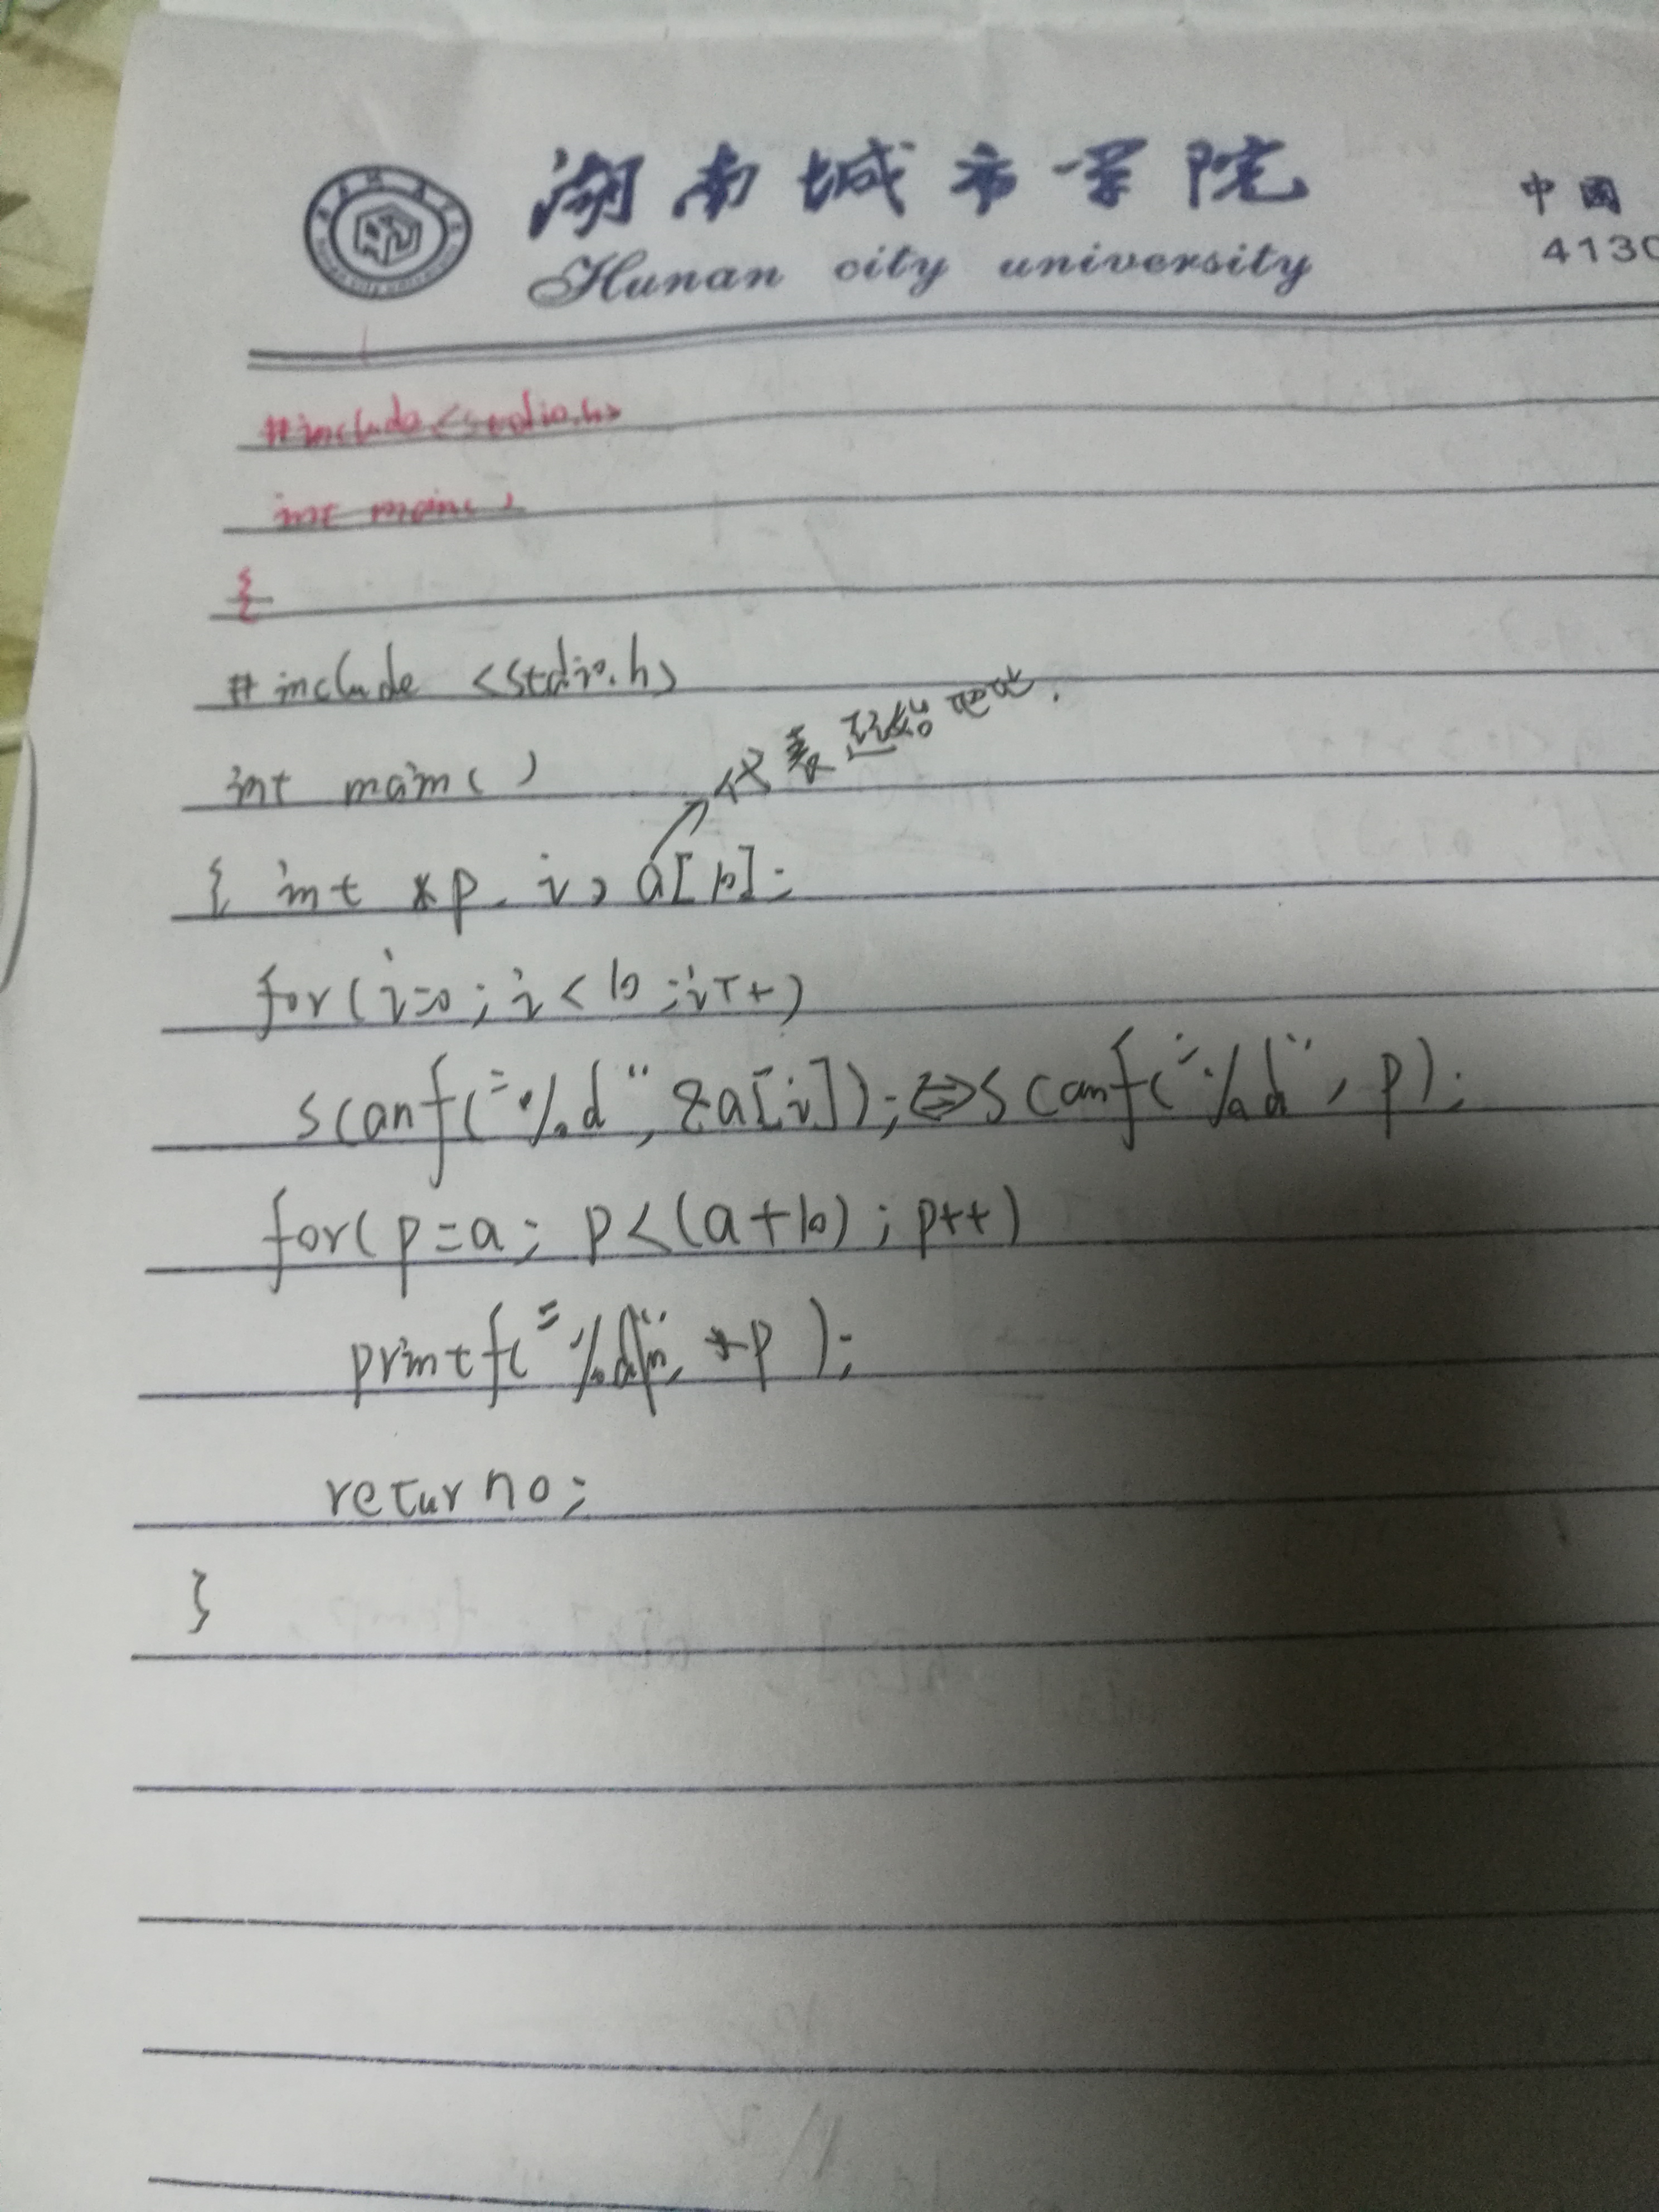 湖南城市学院
中國
Hunan city university
4130
#include<stdio.h>
int main()
{
#include <stdio.h>
代表起始地址.
int main()
{ int *p, i, a[10];
for(i=0; i<10; i++)
scanf("%d", &a[i]); ⇔ scanf("%d", p);
for(p=a; p<(a+10); p++)
printf("%d\n", *p);
return 0;
}